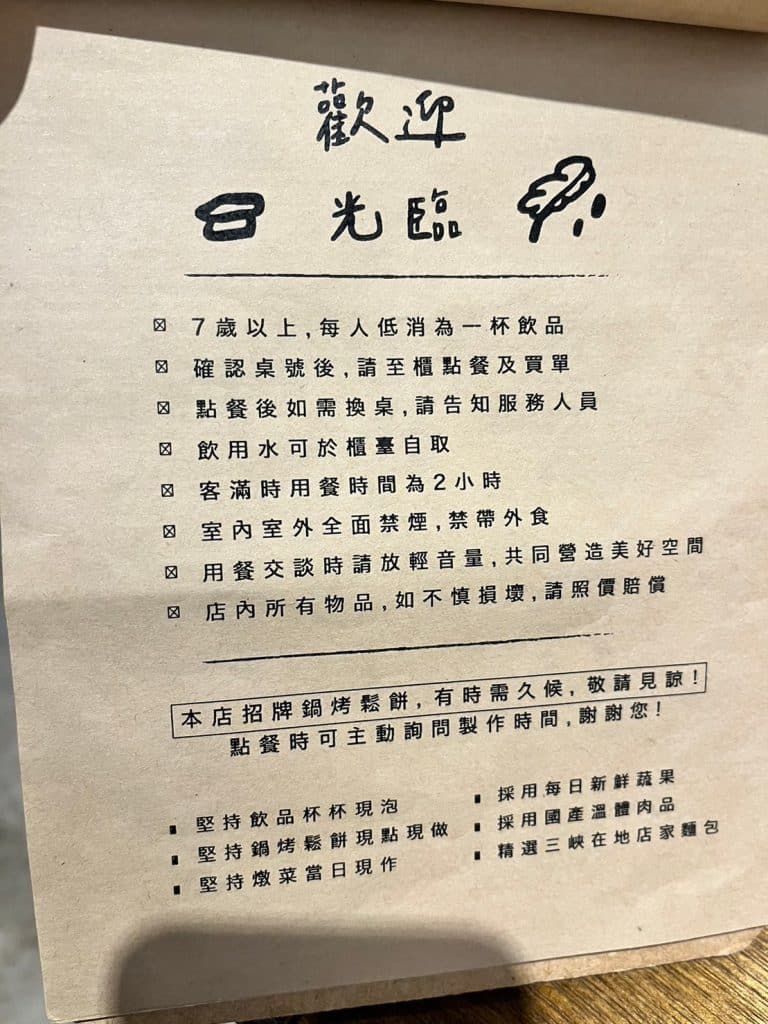 歡迎
光臨
7歲以上,每人低消為一杯飲品
確認桌號後,請至櫃點餐及買單
點餐後如需換桌,請告知服務人員
飲用水可於櫃臺自取
客滿時用餐時間為2小時
室內室外全面禁煙,禁帶外食
用餐交談時請放輕音量,共同營造美好空間
店內所有物品,如不慎損壞,請照價賠償
本店招牌鍋烤鬆餅,有時需久候,敬請見諒!
點餐時可主動詢問製作時間,謝謝您!
堅持飲品杯杯現泡
堅持鍋烤鬆餅現點現做
堅持燉菜當日現作
採用每日新鮮蔬果
採用國產溫體肉品
精選三峽在地店家麵包